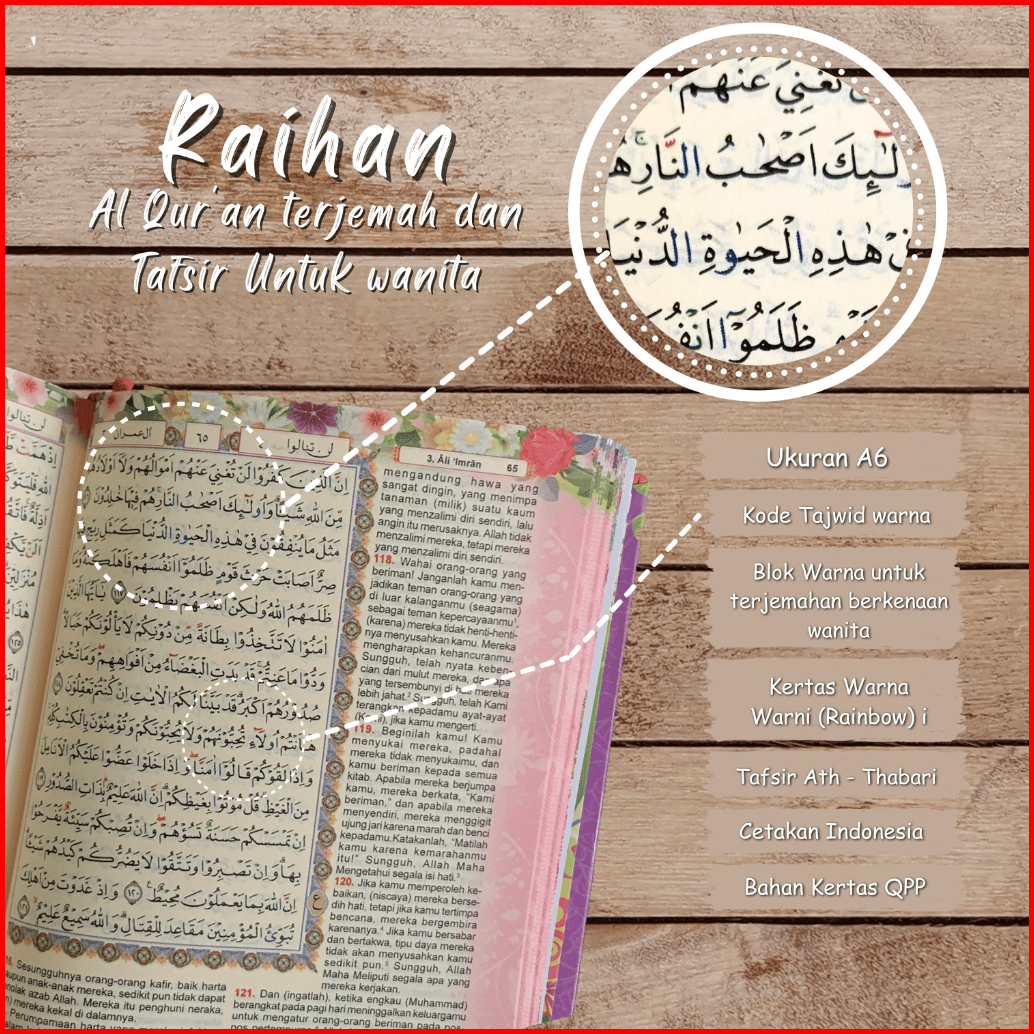 Raihan
Al Qur'an terjemah dan
Tafsir Untuk wanita
تُغْنِيَ عَنْهُمْ
اَصْحٰبُ النَّارِ
هٰذِهِ الْحَيٰوةِ الدُّنْيَا
ظَلَمُوْٓا
Ukuran A6
Kode Tajwid warna
Blok Warna untuk
terjemahan berkenaan
wanita
Kertas Warna
Warni (Rainbow) i
Tafsir Ath - Thabari
Cetakan Indonesia
Bahan Kertas QPP
لن تنالوا
٦٥
اٰل عمران
3. Āli 'Imrān 65
اِنَّ الَّذِيْنَ كَفَرُوْا لَنْ تُغْنِيَ عَنْهُمْ اَمْوَالُهُمْ وَلَآ اَوْلَادُهُمْ
مِّنَ اللّٰهِ شَيْـًٔا ۗ وَاُولٰۤىِٕكَ اَصْحٰبُ النَّارِ ۚ هُمْ فِيْهَا خٰلِدُوْنَ
مَثَلُ مَا يُنْفِقُوْنَ فِيْ هٰذِهِ الْحَيٰوةِ الدُّنْيَا كَمَثَلِ رِيْحٍ
صِرٌّ اَصَابَتْ حَرْثَ قَوْمٍ ظَلَمُوْٓا اَنْفُسَهُمْ فَاَهْلَكَتْهُ ۗ وَمَا
ظَلَمَهُمُ اللّٰهُ وَلٰكِنْ اَنْفُسَهُمْ يَظْلِمُوْنَ ١١٧ يٰٓاَيُّهَا الَّذِيْنَ
اٰمَنُوْا لَا تَتَّخِذُوْا بِطَانَةً مِّنْ دُوْنِكُمْ لَا يَأْلُوْنَكُمْ خَبَالًا ۗ
وَدُّوْا مَا عَنِتُّمْ ۚ قَدْ بَدَتِ الْبَغْضَاۤءُ مِنْ اَفْوَاهِهِمْ ۖ وَمَا تُخْفِيْ
صُدُوْرُهُمْ اَكْبَرُ ۗ قَدْ بَيَّنَّا لَكُمُ الْاٰيٰتِ اِنْ كُنْتُمْ تَعْقِلُوْنَ
هٰٓاَنْتُمْ اُولَاۤءِ تُحِبُّوْنَهُمْ وَلَا يُحِبُّوْنَكُمْ وَتُؤْمِنُوْنَ بِالْكِتٰبِ كُلِّهٖ ۚ
وَاِذَا لَقُوْكُمْ قَالُوْٓا اٰمَنَّا ۖ وَاِذَا خَلَوْا عَضُّوْا عَلَيْكُمُ الْاَنَامِلَ
مِنَ الْغَيْظِ ۗ قُلْ مُوْتُوْا بِغَيْظِكُمْ ۗ اِنَّ اللّٰهَ عَلِيْمٌ ۢ بِذَاتِ الصُّدُوْرِ
اِنْ تَمْسَسْكُمْ حَسَنَةٌ تَسُؤْهُمْ ۖ وَاِنْ تُصِبْكُمْ سَيِّئَةٌ يَّفْرَحُوْا
بِهَا ۗ وَاِنْ تَصْبِرُوْا وَتَتَّقُوْا لَا يَضُرُّكُمْ كَيْدُهُمْ شَيْـًٔا ۗ
اِنَّ اللّٰهَ بِمَا يَعْمَلُوْنَ مُحِيْطٌ ١٢٠ وَاِذْ غَدَوْتَ مِنْ اَهْلِكَ
تُبَوِّئُ الْمُؤْمِنِيْنَ مَقَاعِدَ لِلْقِتَالِ ۗ وَاللّٰهُ سَمِيْعٌ عَلِيْمٌ
mengandung hawa yang
sangat dingin, yang menimpa
tanaman (milik) suatu kaum
yang menzalimi diri sendiri, lalu
angin itu merusaknya. Allah tidak
menzalimi mereka, tetapi mereka
yang menzalimi diri sendiri.
118. Wahai orang-orang yang
beriman! Janganlah kamu men-
jadikan teman orang-orang yang
di luar kalanganmu (seagama)
sebagai teman kepercayaanmu¹,
(karena) mereka tidak henti-henti-
nya menyusahkan kamu. Mereka
mengharapkan kehancuranmu.
Sungguh, telah nyata keben-
cian dari mulut mereka, dan apa
yang tersembunyi di hati mereka
lebih jahat.² Sungguh, telah Kami
terangkan kepadamu ayat-ayat
(Kami), jika kamu mengerti.
119. Beginilah kamu! Kamu
menyukai mereka, padahal
mereka tidak menyukaimu, dan
kamu beriman kepada semua
kitab. Apabila mereka berjumpa
kamu, mereka berkata, "Kami
beriman," dan apabila mereka
menyendiri, mereka menggigit
ujung jari karena marah dan benci
kepadamu. Katakanlah, "Matilah
kamu karena kemarahanmu
itu!" Sungguh, Allah Maha
Mengetahui segala isi hati.³
120. Jika kamu memperoleh ke-
baikan, (niscaya) mereka berse-
dih hati, tetapi jika kamu tertimpa
bencana, mereka bergembira
karenanya.⁴ Jika kamu bersabar
dan bertakwa, tipu daya mereka
tidak akan menyusahkan kamu
sedikit pun.⁵ Sungguh, Allah
Maha Meliputi segala apa yang
mereka kerjakan.
121. Dan (ingatlah), ketika engkau (Muhammad)
berangkat pada pagi hari meninggalkan keluargamu
untuk mengatur orang-orang beriman pada pos-
Sesungguhnya orang-orang kafir, baik harta
anak-anak mereka, sedikit pun tidak dapat
azab Allah. Mereka itu penghuni neraka,
mereka kekal di dalamnya.
Perumpamaan harta yang